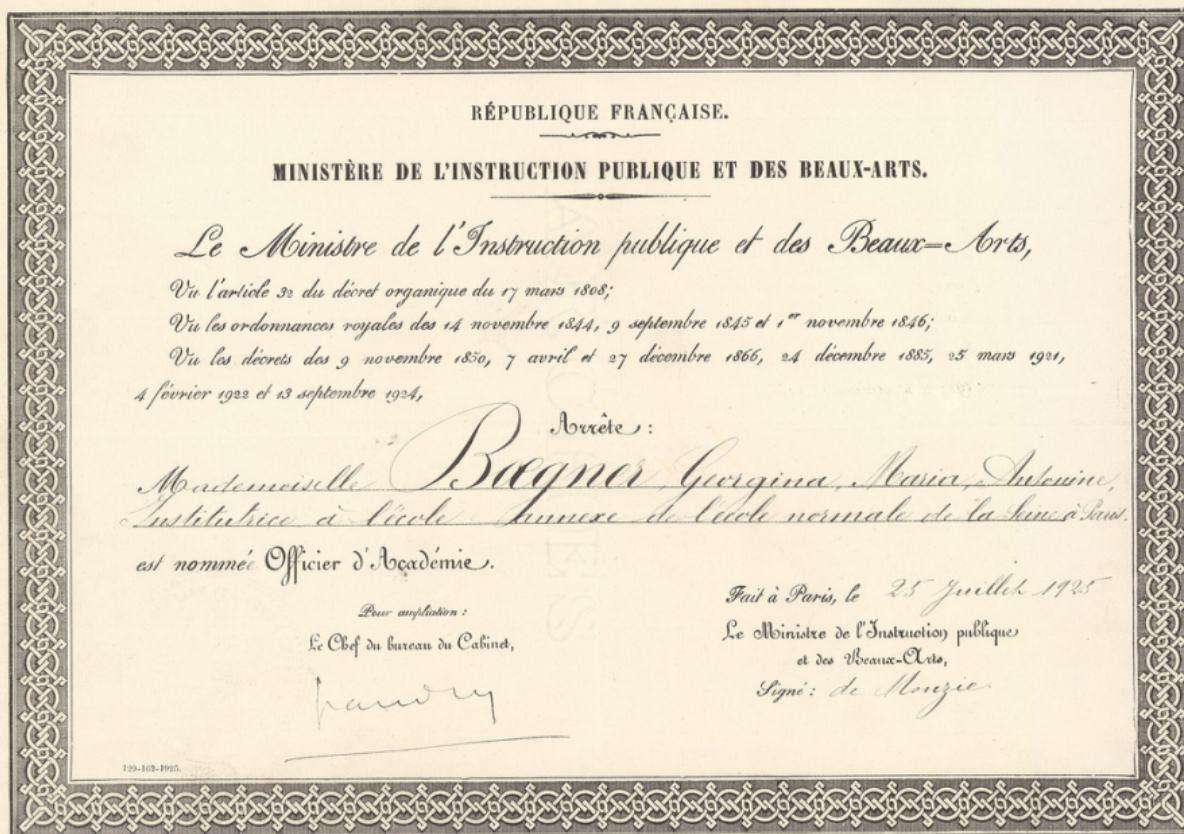 RÉPUBLIQUE FRANÇAISE.
MINISTÈRE DE L'INSTRUCTION PUBLIQUE ET DES BEAUX-ARTS.
Le Ministre de l'Instruction publique et des Beaux=Arts,
Vu l'article 32 du décret organique du 17 mars 1808;
Vu les ordonnances royales des 14 novembre 1844, 9 septembre 1845 et 1er novembre 1846;
Vu les décrets des 9 novembre 1850, 7 avril et 27 décembre 1866, 24 décembre 1885, 25 mars 1921,
4 février 1922 et 13 septembre 1924,
Arrête:
Mademoiselle Bœgner, Georgina, Maria, Antonine,
Institutrice à l'école annexe de l'école normale de la Seine à Paris.
est nommée Officier d'Académie.
Pour ampliation:
Le Chef du bureau du Cabinet,
Fait à Paris, le 25 Juillet 1925
Le Ministre de l'Instruction publique
et des Beaux-Arts,
Signé: de Monzie
129-162-1925.